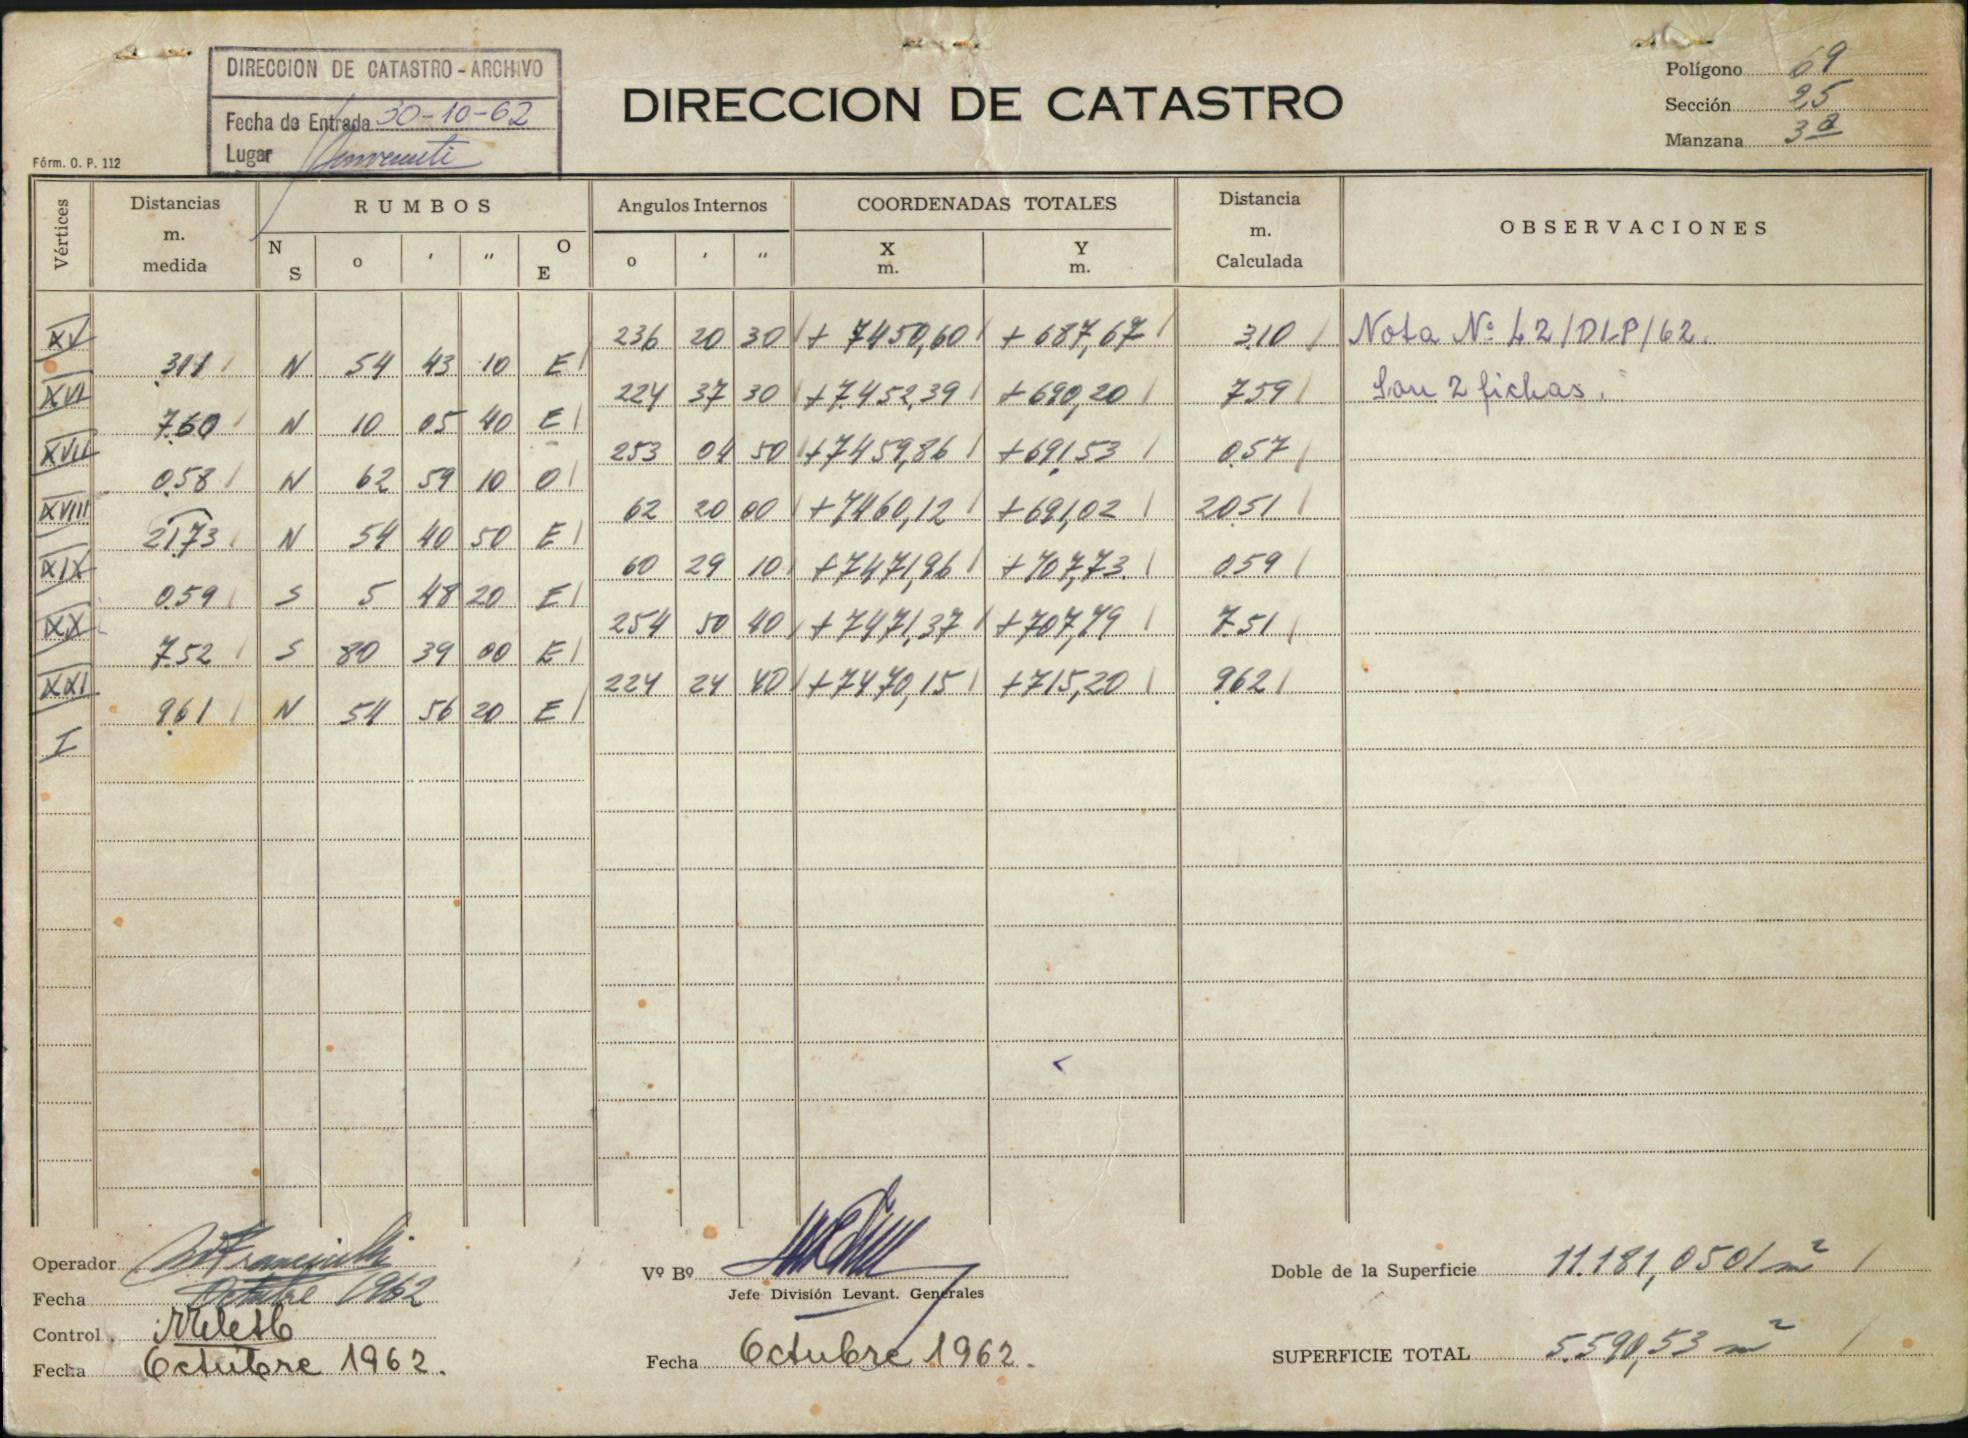 DIRECCION DE CATASTRO - ARCHIVO
Fecha de Entrada 30-10-62
Lugar
Fórm. O. P. 112
DIRECCION DE CATASTRO
Polígono 69
Sección 25
Manzana 3ª
Vértices
Distancias m. medida
RUMBOS
N S
o
'
"
O E
Angulos Internos
o ' "
COORDENADAS TOTALES
X m.
Y m.
Distancia m. Calculada
OBSERVACIONES
XV 236 20 30 + 7450,60 + 687,67 3,10 Nota Nº 42/DLP/62.
3,11 N 54 43 10 E
XVI 224 37 30 +7.452,39 +690,20 7,59 Son 2 fichas.
7,60 N 10 05 40 E
XVII 253 04 50 +7459,86 +691,53 0,57
0,58 N 62 59 10 O
XVIII 62 20 00 +7460,12 +691,02 20,51
21,73 N 54 40 50 E
XIX 60 29 10 +7471,96 +707,73 0,59
0,59 S 5 48 20 E
XX 254 50 40 +7471,37 +707,79 7,51
7,52 S 80 39 00 E
XXI 224 24 40 +7470,15 +715,20 9,62
9,61 N 54 56 20 E
I
Operador
Fecha Octubre 1962
Control
Fecha Octubre 1962.
Vº Bº
Jefe División Levant. Generales
Fecha Octubre 1962.
Doble de la Superficie 11.181,0501 m²
SUPERFICIE TOTAL 5.590,53 m²